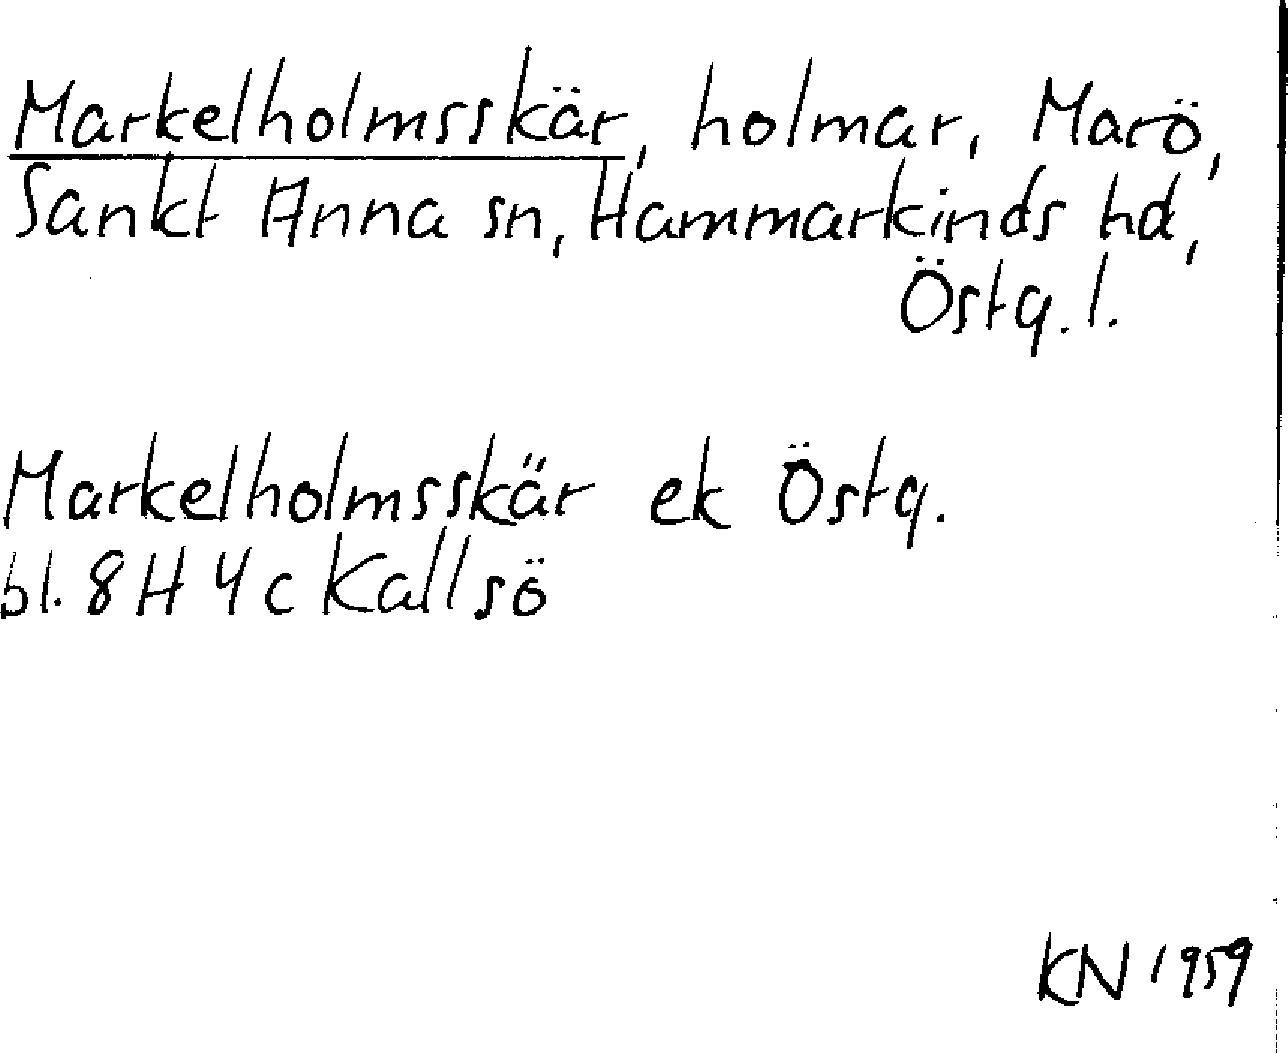 Markelholmsskär, holmar, Marö,
Sankt Anna sn, Hammarkinds hd,
Östg. l.
Markelholmsskär ek Östg.
bl. 8H 4c Kallsö
KN 1959